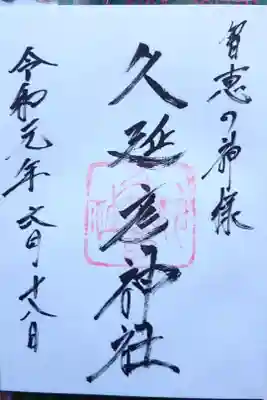 智恵の神様
久延彦神社
令和元年文月十八日